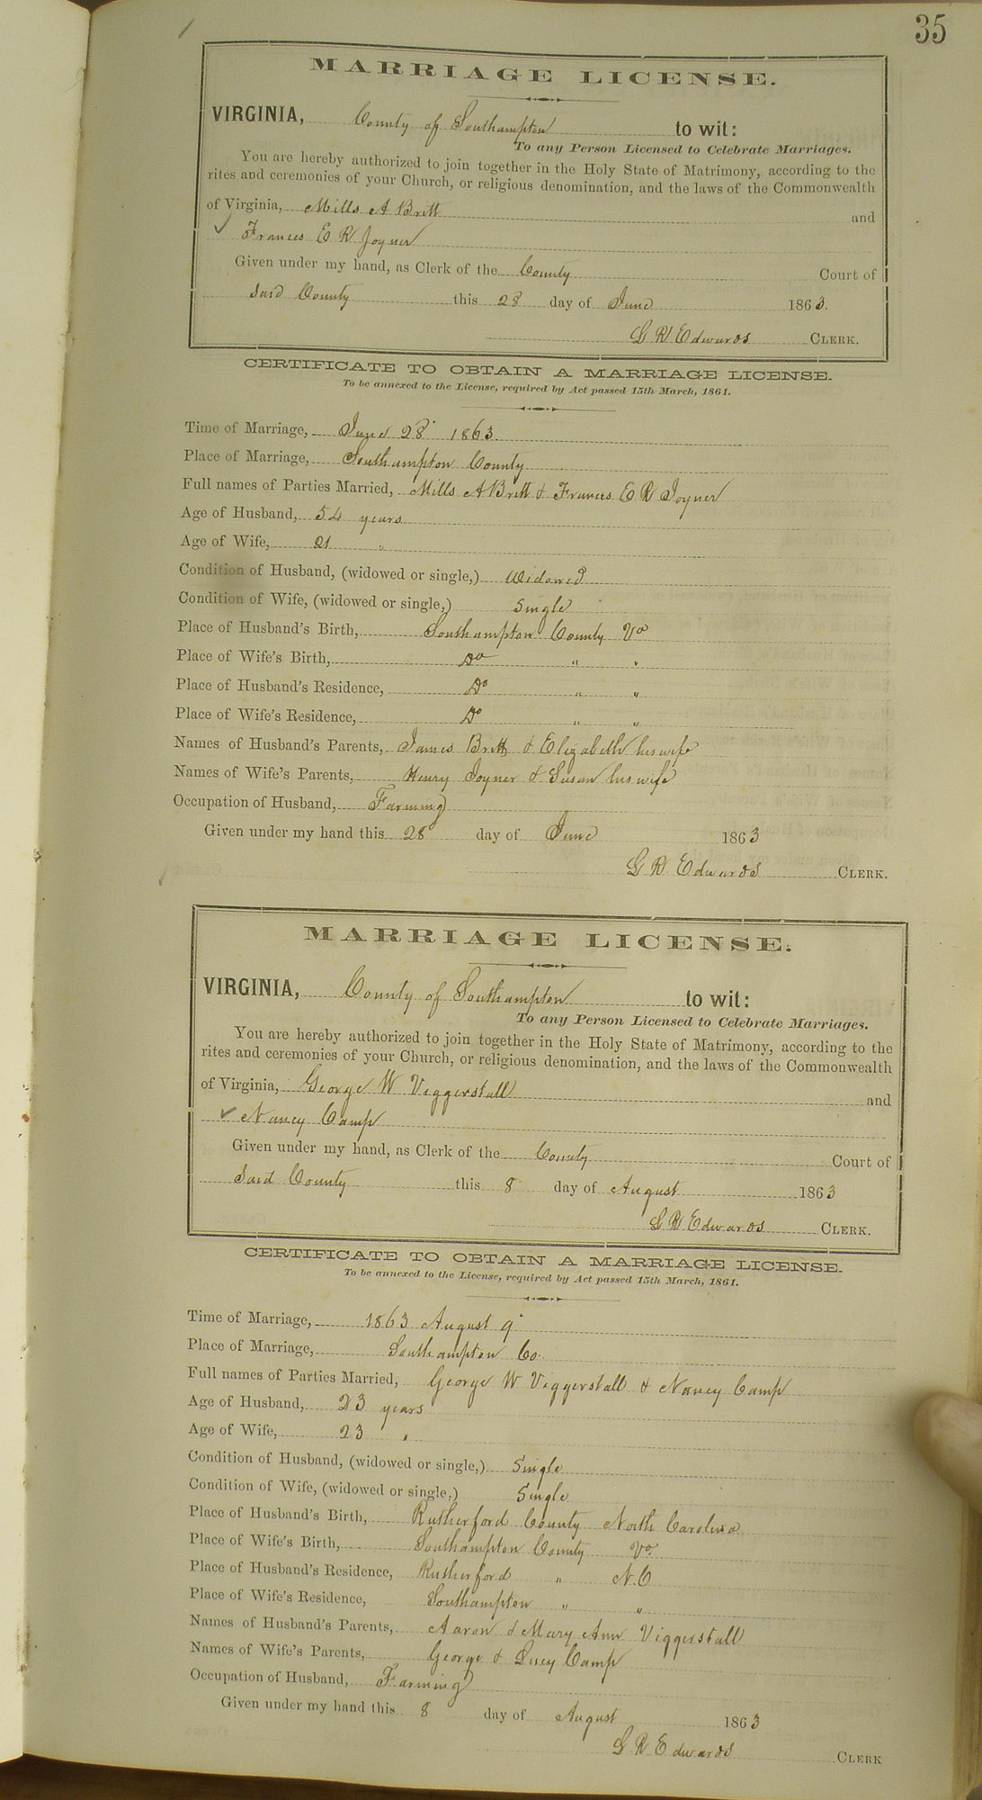 35
MARRIAGE LICENSE.
VIRGINIA, County of Southampton to wit:
To any Person Licensed to Celebrate Marriages.
You are hereby authorized to join together in the Holy State of Matrimony, according to the
rites and ceremonies of your Church, or religious denomination, and the laws of the Commonwealth
of Virginia, Mills A Britt and
✓ Frances E R Joyner
Given under my hand, as Clerk of the County Court of
Said County this 28 day of June 1863.
G R Edwards CLERK.
CERTIFICATE TO OBTAIN A MARRIAGE LICENSE.
To be annexed to the License, required by Act passed 15th March, 1861.
Time of Marriage, June 28 1863
Place of Marriage, Southampton County
Full names of Parties Married, Mills A Britt & Frances E R Joyner
Age of Husband, 54 years
Age of Wife, 21 "
Condition of Husband, (widowed or single,) Widowed
Condition of Wife, (widowed or single,) Single
Place of Husband's Birth, Southampton County Va
Place of Wife's Birth, Do " "
Place of Husband's Residence, Do " "
Place of Wife's Residence, Do " "
Names of Husband's Parents, James Britt & Elizabeth his wife
Names of Wife's Parents, Henry Joyner & Susan his wife
Occupation of Husband, Farming
Given under my hand this 28 day of June 1863
G R Edwards CLERK.
MARRIAGE LICENSE.
VIRGINIA, County of Southampton to wit:
To any Person Licensed to Celebrate Marriages.
You are hereby authorized to join together in the Holy State of Matrimony, according to the
rites and ceremonies of your Church, or religious denomination, and the laws of the Commonwealth
of Virginia, George W Viggerstall and
✓ Nancy Camp
Given under my hand, as Clerk of the County Court of
Said County this 8 day of August 1863
G R Edwards CLERK.
CERTIFICATE TO OBTAIN A MARRIAGE LICENSE.
To be annexed to the License, required by Act passed 15th March, 1861.
Time of Marriage, 1863 August 9
Place of Marriage, Southampton Co.
Full names of Parties Married, George W Viggerstall & Nancy Camp
Age of Husband, 23 years
Age of Wife, 23 "
Condition of Husband, (widowed or single,) Single
Condition of Wife, (widowed or single,) Single
Place of Husband's Birth, Rutherford County North Carolina
Place of Wife's Birth, Southampton County Va
Place of Husband's Residence, Rutherford " N.C
Place of Wife's Residence, Southampton " "
Names of Husband's Parents, Aaron & Mary Ann Viggerstall
Names of Wife's Parents, George & Lucy Camp
Occupation of Husband, Farming
Given under my hand this 8 day of August 1863
G R Edwards CLERK